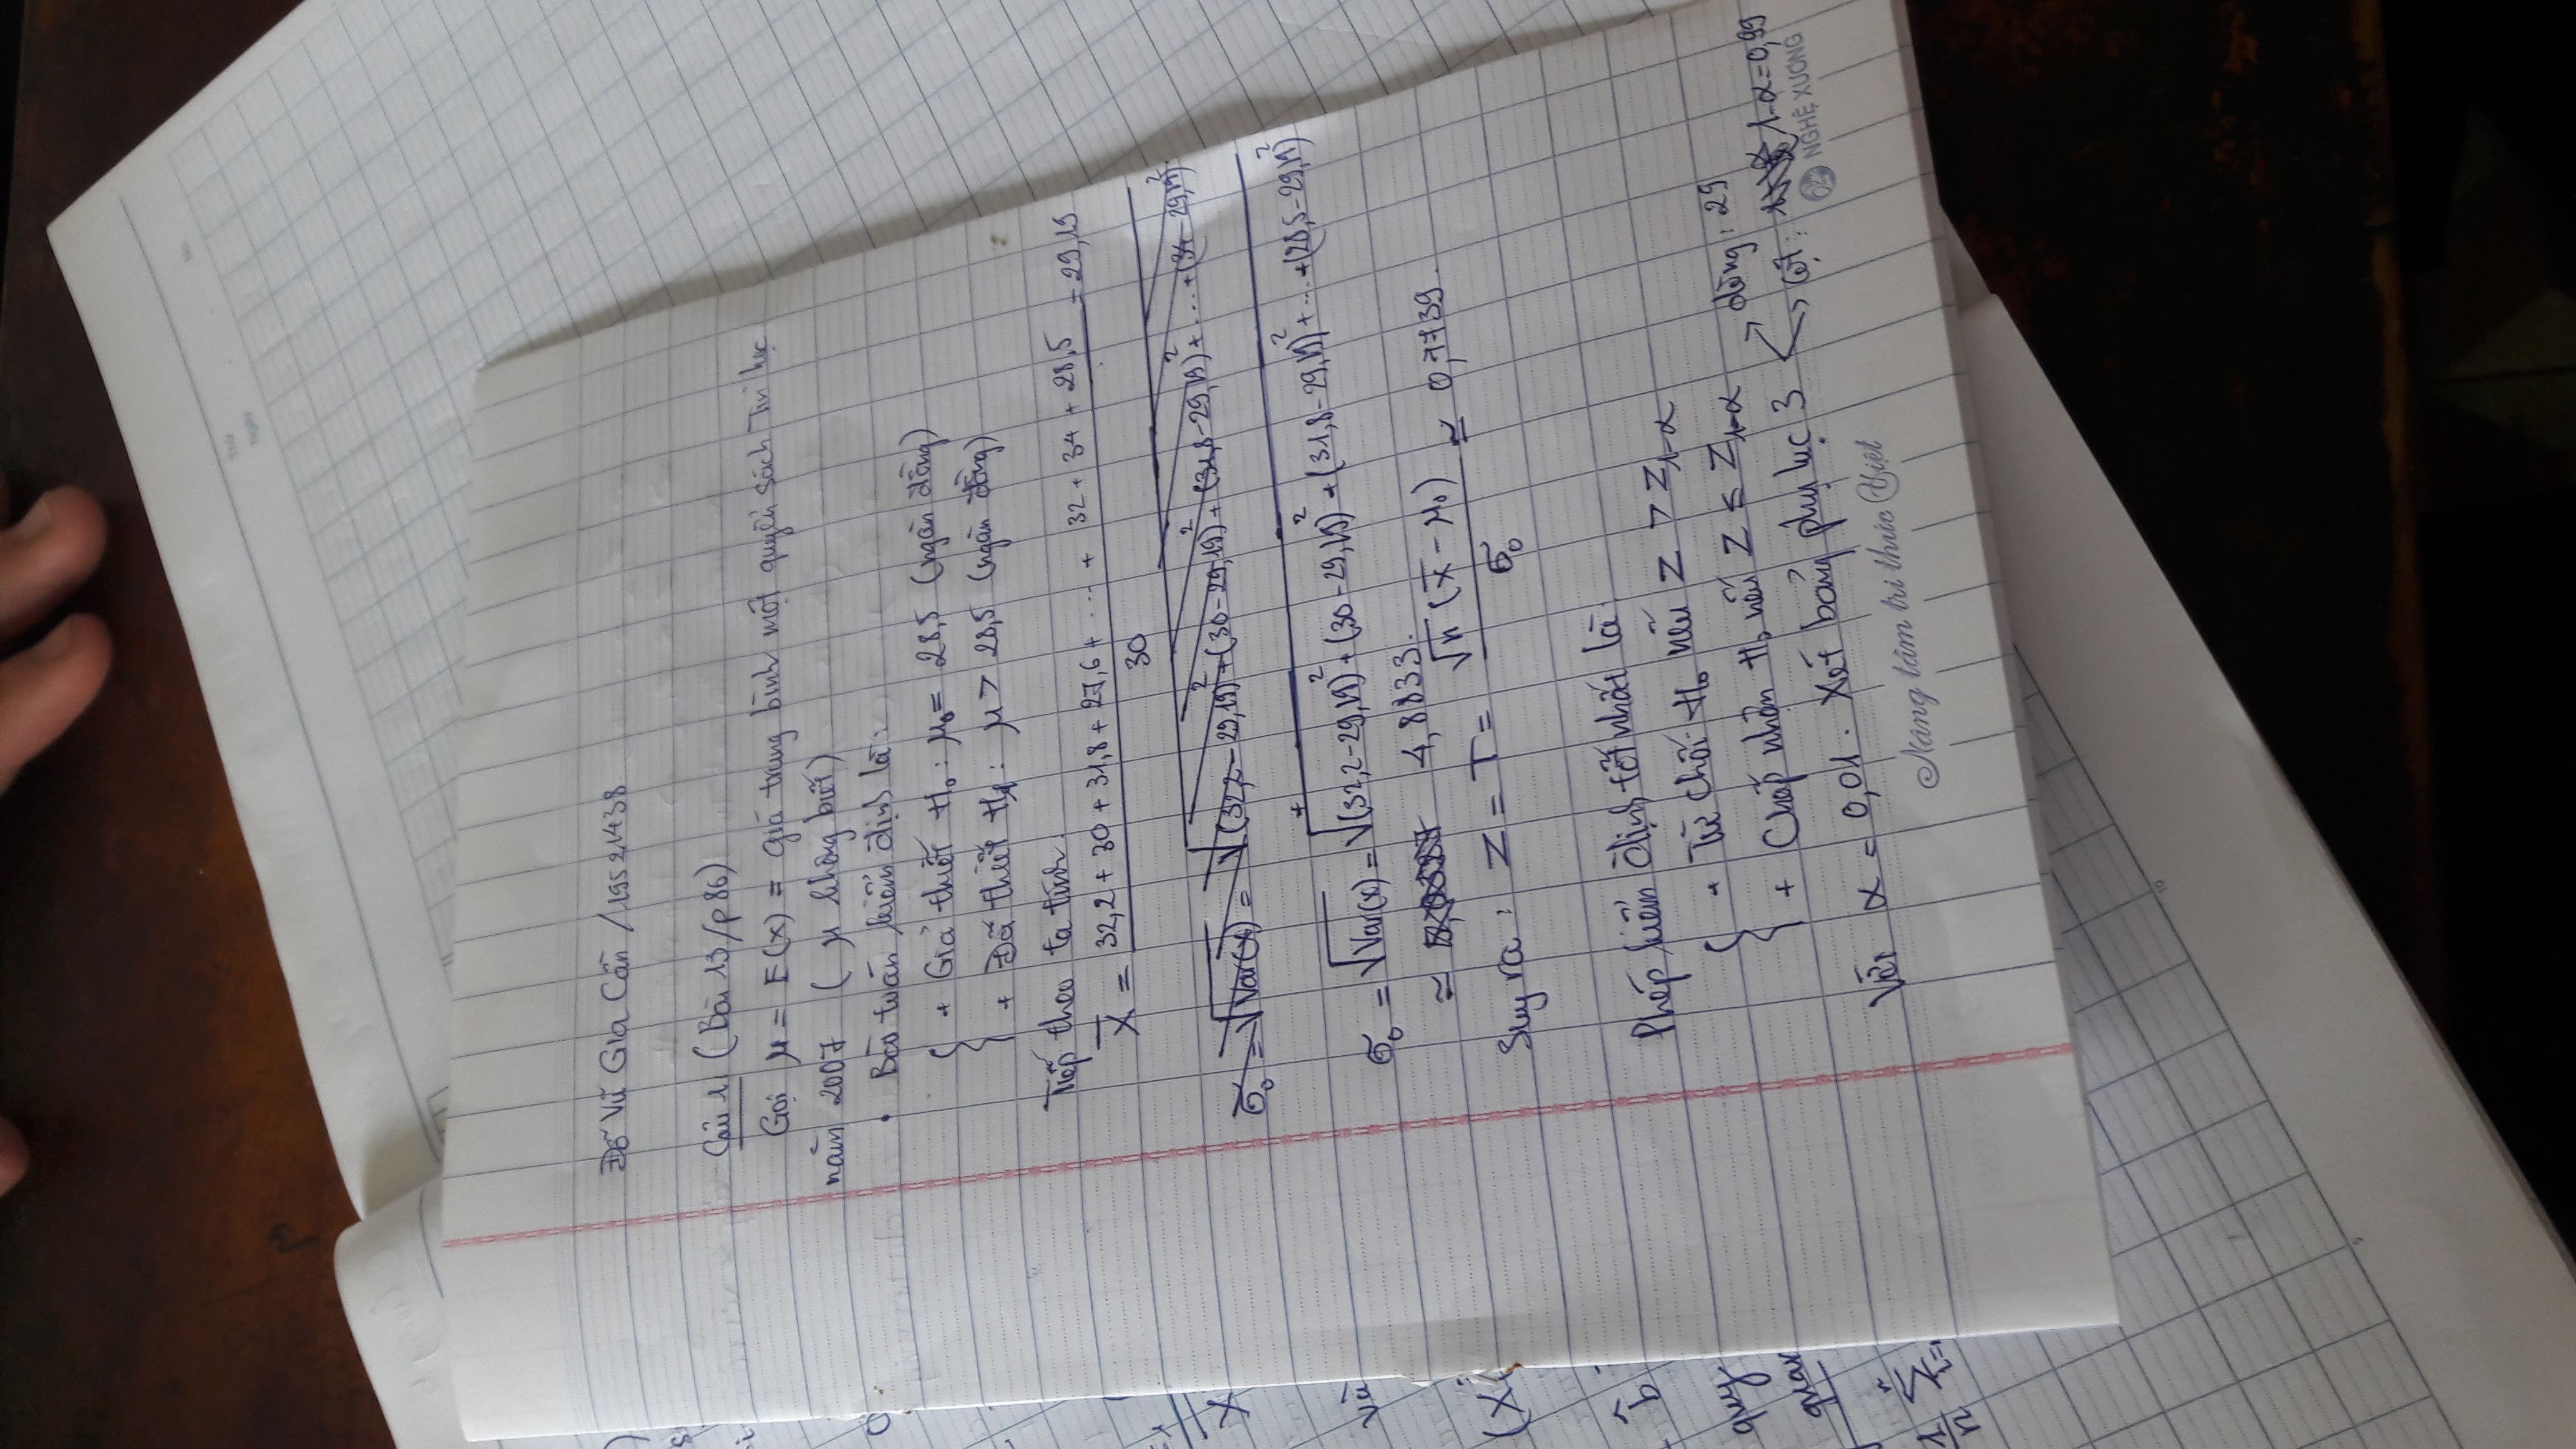 Thứ
Ngày
No.
Đỗ Vũ Gia Cần / 19521438
Câu 1 (Bài 13/p86)
Gọi μ = E(x) = giá trung bình một quyển sách Tin học
năm 2007 ( μ không biết)
• Bào toán kiểm định là:
+ Giả thiết H₀: μ₀ = 28,5 (ngàn đồng)
+ Đối thiết H₁: μ > 28,5 (ngàn đồng)
Tiếp theo ta tính
X̄ = (32,2 + 30 + 31,8 + 27,6 + ... + 32 + 34 + 28,5) / 30 = 29,19
σ₀ = √Var(x) = √(32,2 - 29,19)² + (30 - 29,19)² + (31,8 - 29,19)² + ... + (34 - 29,19)²
σ₀ = √Var(x) = √(32,2 - 29,19)² + (30 - 29,19)² + (31,8 - 29,19)² + ... + (28,5 - 29,19)²
≈ 4,8833.
Suy ra: Z = T = √n (x̄ - μ₀) / σ₀ ≈ 0,7739.
Phép kiểm định tốt nhất là
+ Từ chối H₀ nếu Z > Z₁₋α
+ Chấp nhận H₀ nếu Z ≤ Z₁₋α
Với α = 0,01. Xét bảng phụ lục 3 dòng: 29
cột: 1-α = 0,99
NGHỆ XƯƠNG
Nâng tầm tri thức Việt
và
b̂
quy
quan
1/n Σ i=1 n
10
5